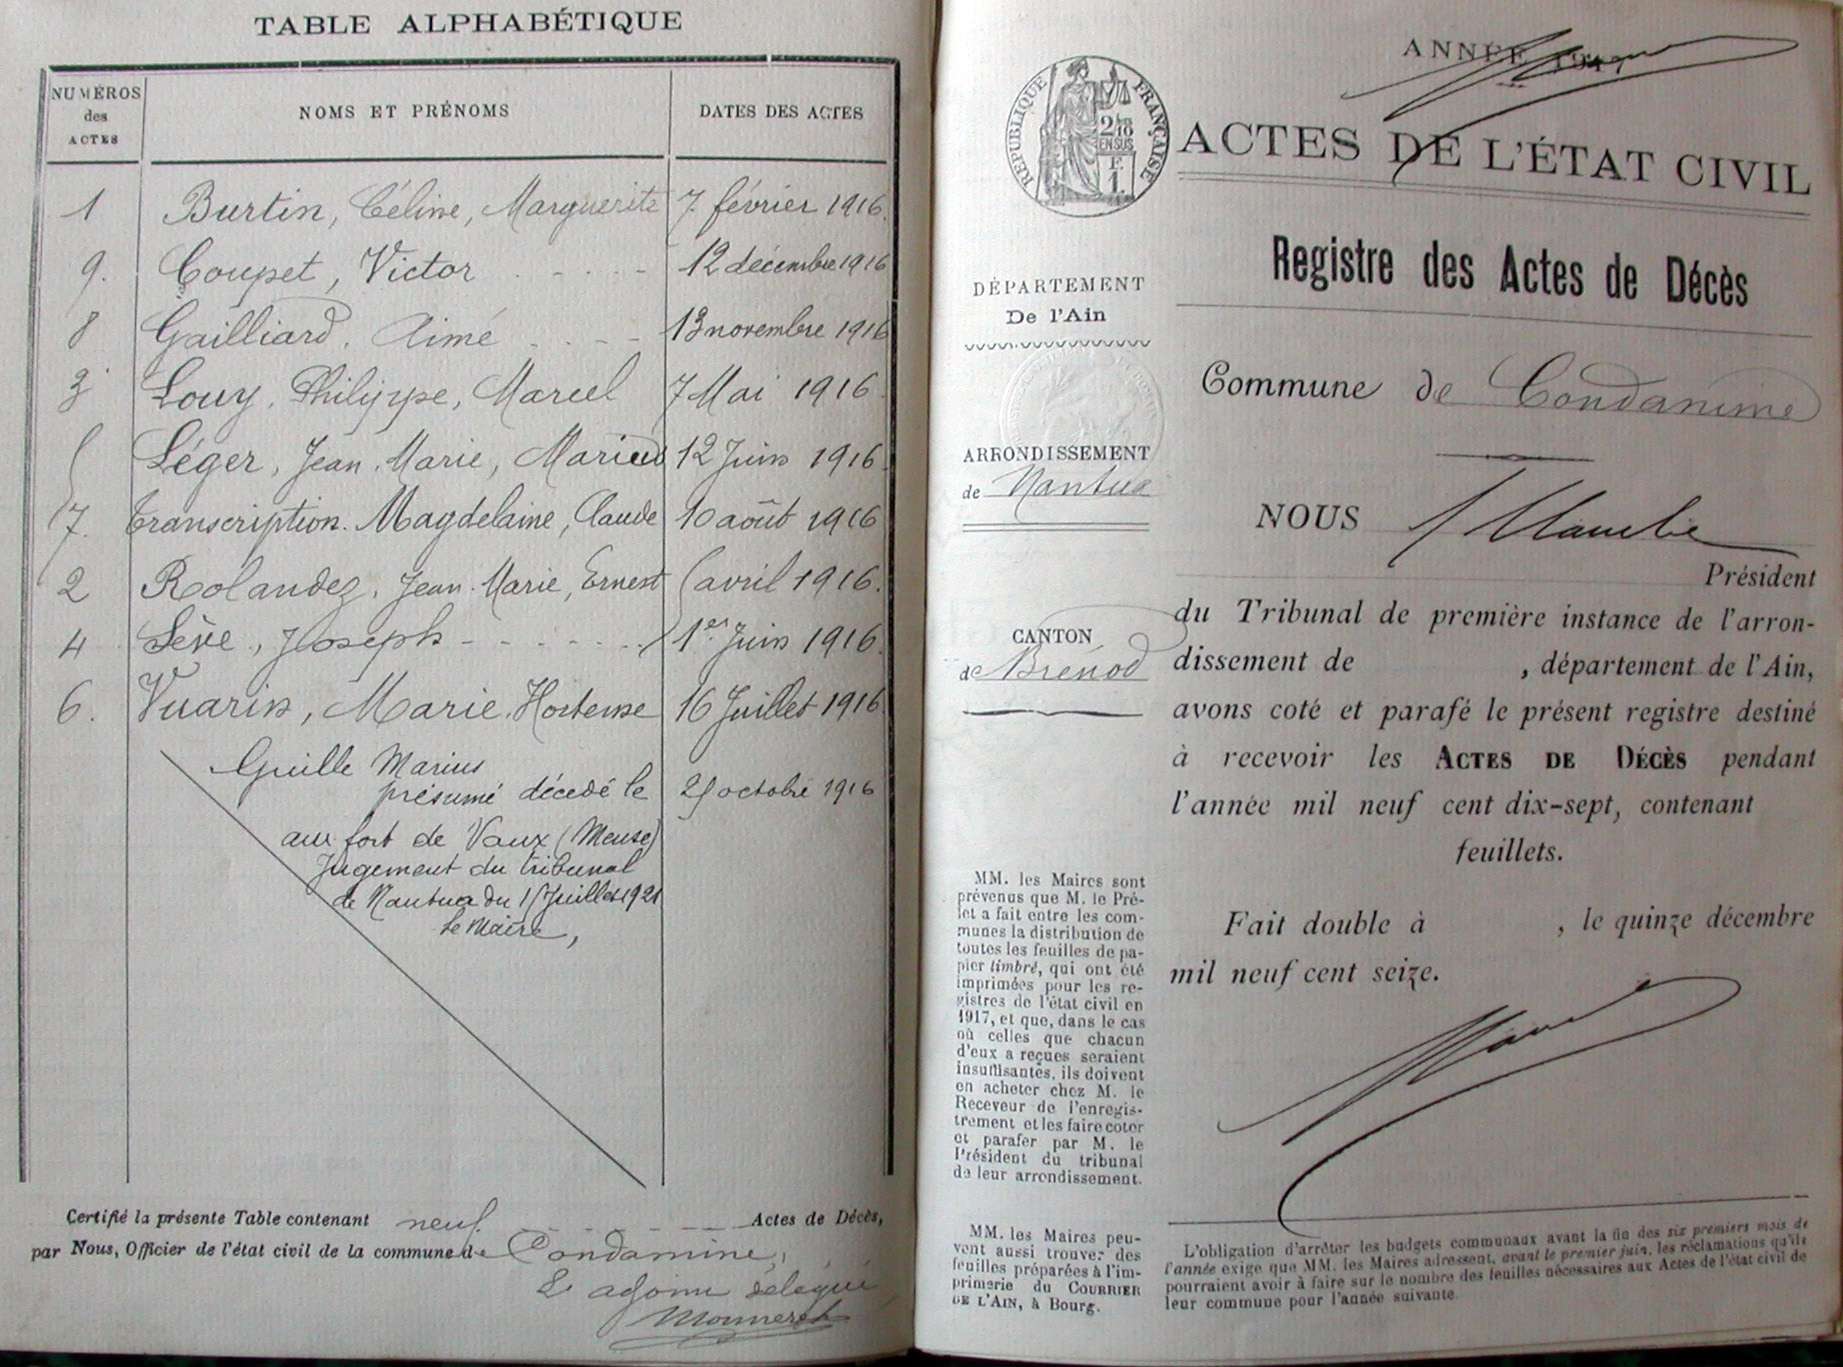 TABLE ALPHABÉTIQUE
NUMÉROS
des
ACTES
NOMS ET PRÉNOMS
DATES DES ACTES
1 Burtin, Céline, Marguerite 7 février 1916.
9. Coupet, Victor 12 décembre 1916
8 Gailliard, Aimé 13 novembre 1916
3 Louy, Philippe, Marcel 7 Mai 1916.
5 Léger, Jean-Marie, Marius 12 Juin 1916.
7. transcription. Magdelaine, Claude 10 août 1916
2 Rolandez, Jean-Marie, Ernest 5 avril 1916.
4 Sève, Joseph 1er Juin 1916.
6. Vuarin, Marie, Hortense 16 Juillet 1916
Guille Marius
présumé décédé le 25 octobre 1916
au fort de Vaux (Meuse)
Jugement du tribunal
de Nantua du 15 Juillet 1921
Le Maire,
Certifié la présente Table contenant neuf Actes de Décès,
par Nous, Officier de l'état civil de la commune de Condamine,
L'adjoint délégué
Monneret
ANNÉE 1917
RÉPUBLIQUE FRANÇAISE
2/10
EN SUS
F.
1.
ACTES DE L'ÉTAT CIVIL
Registre des Actes de Décès
DÉPARTEMENT
De l'Ain
Commune de Condamine
ARRONDISSEMENT
de Nantua
NOUS
Président
du Tribunal de première instance de l'arron-
dissement de , département de l'Ain,
avons coté et parafé le présent registre destiné
à recevoir les ACTES DE DÉCÈS pendant
l'année mil neuf cent dix-sept, contenant
feuillets.
Fait double à , le quinze décembre
mil neuf cent seize.
CANTON
de Brénod
MM. les Maires sont
prévenus que M. le Pré-
fet a fait entre les com-
munes la distribution de
toutes les feuilles de pa-
pier timbré, qui ont été
imprimées pour les re-
gistres de l'état civil en
1917, et que, dans le cas
où celles que chacun
d'eux a reçues seraient
insuffisantes, ils doivent
en acheter chez M. le
Receveur de l'enregis-
trement et les faire coter
et parafer par M. le
Président du tribunal
de leur arrondissement.
MM. les Maires peu-
vent aussi trouver des
feuilles préparées à l'im-
primerie du COURRIER
DE L'AIN, à Bourg.
L'obligation d'arrêter les budgets communaux avant la fin des six premiers mois de
l'année exige que MM. les Maires adressent, avant le premier juin, les réclamations qu'ils
pourraient avoir à faire sur le nombre des feuilles nécessaires aux Actes de l'état civil de
leur commune pour l'année suivante.